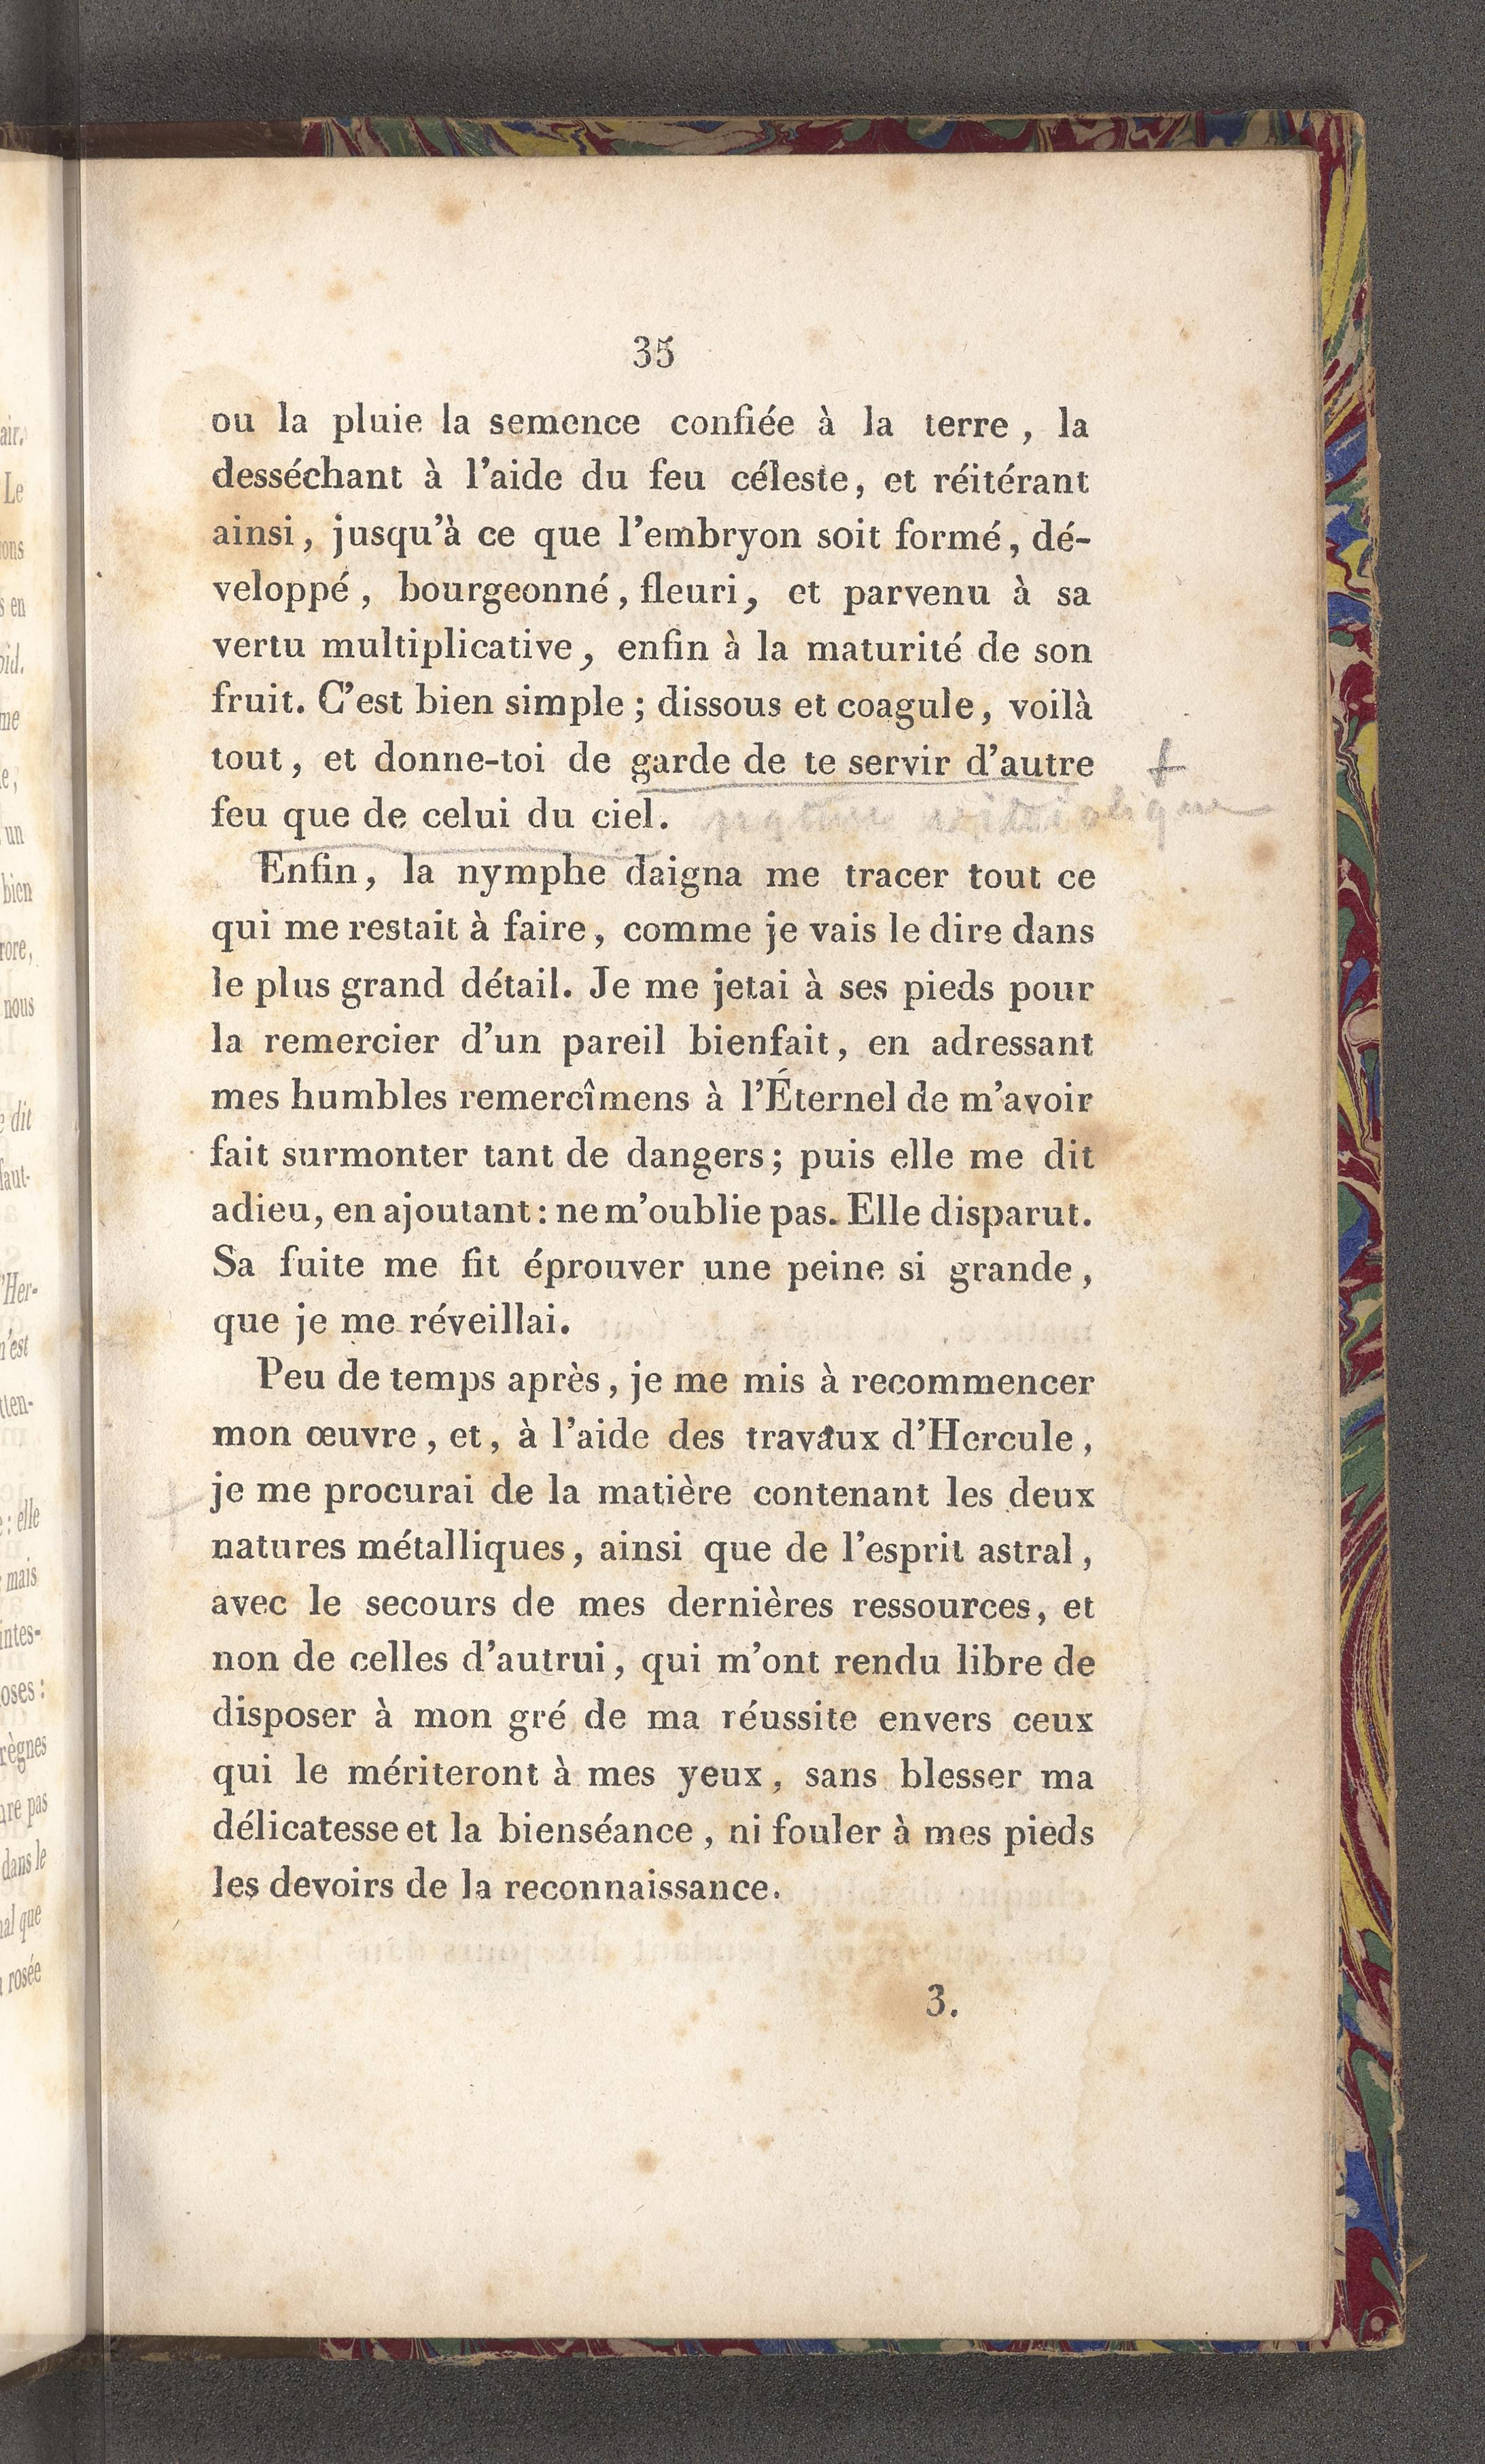 35
ou la pluie la semence confiée à la terre, la
desséchant à l'aide du feu céleste, et réitérant
ainsi, jusqu'à ce que l'embryon soit formé, dé-
veloppé, bourgeonné, fleuri, et parvenu à sa
vertu multiplicative, enfin à la maturité de son
fruit. C'est bien simple; dissous et coagule, voilà
tout, et donne-toi de garde de te servir d'autre
feu que de celui du ciel.
Enfin, la nymphe daigna me tracer tout ce
qui me restait à faire, comme je vais le dire dans
le plus grand détail. Je me jetai à ses pieds pour
la remercier d'un pareil bienfait, en adressant
mes humbles remercîmens à l'Éternel de m'avoir
fait surmonter tant de dangers; puis elle me dit
adieu, en ajoutant: ne m'oublie pas. Elle disparut.
Sa fuite me fit éprouver une peine si grande,
que je me réveillai.
Peu de temps après, je me mis à recommencer
mon œuvre, et, à l'aide des travaux d'Hercule,
je me procurai de la matière contenant les deux
natures métalliques, ainsi que de l'esprit astral,
avec le secours de mes dernières ressources, et
non de celles d'autrui, qui m'ont rendu libre de
disposer à mon gré de ma réussite envers ceux
qui le mériteront à mes yeux, sans blesser ma
délicatesse et la bienséance, ni fouler à mes pieds
les devoirs de la reconnaissance.
3.
air.
Le
ons
s en
me
un
bien
nous
dit
faut-
'Her-
n'est
tten-
: elle
mais
intes-
oses:
règnes
pas
dans le
al que
rosée